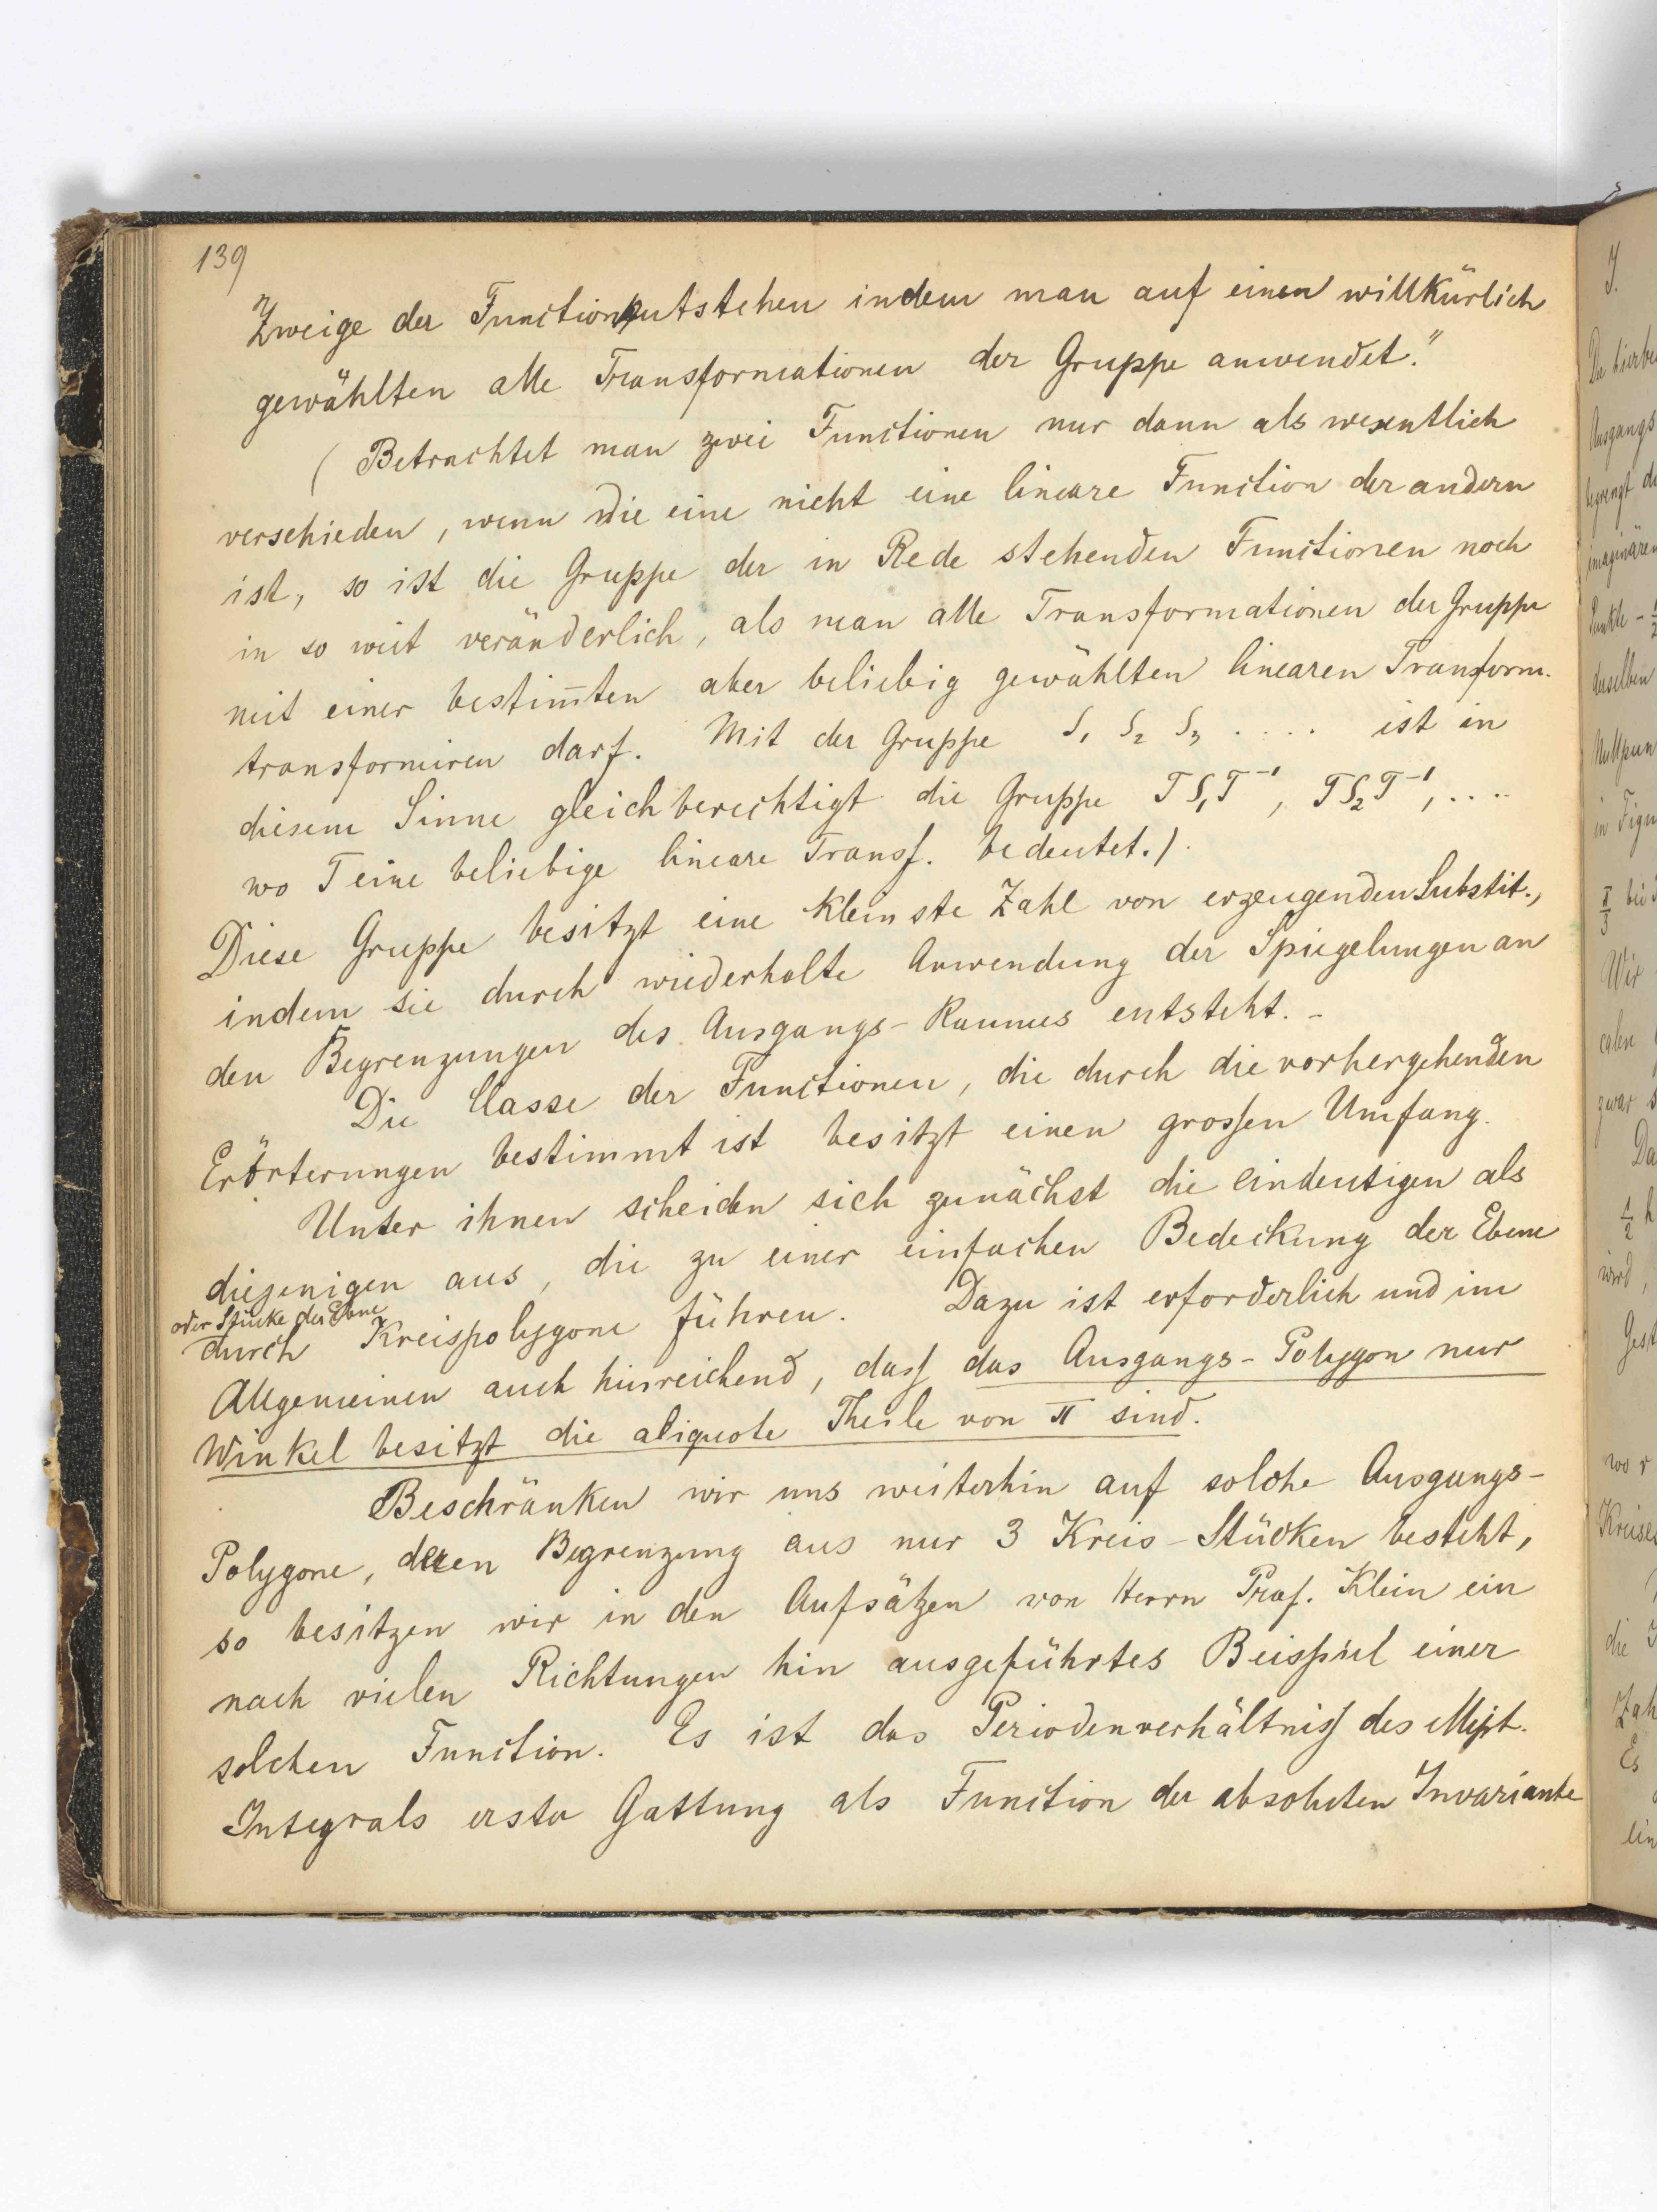 139
Zweige der Function entstehen indem man auf einen willkürlich
gewählten alle Transformationen der Gruppe anwendet."
(Betrachtet man zwei Functionen nur dann als wesentlich
verschieden, wenn die eine nicht eine lineare Function der andern
ist, so ist die Gruppe der in Rede stehenden Functionen noch
in so weit veränderlich, als man alle Transformationen der Gruppe
mit einer bestim̄ten aber beliebig gewählten linearen Transform.
transformiren darf. Mit der Gruppe S₁ S₂ S₃ .... ist in
diesem Sinne gleichberechtigt die Gruppe TS₁T⁻¹, TS₂T⁻¹, ....
wo T eine beliebige lineare Transf. bedeutet.).
Diese Gruppe besitzt eine kleinste Zahl von erzeugenden Substit.,
indem sie durch wiederholte Anwendung der Spiegelungen an
den Begrenzungen des Ausgangs-Raumes entsteht. –
Die Classe der Functionen, die durch die vorhergehenden
Erörterungen bestimmt ist besitzt einen grossen Umfang.
Unter ihnen scheiden sich zunächst die eindeutigen als
diejenigen aus, die zu einer einfachen Bedeckung der Ebene
oder Stücke der Ebene
durch Kreispolygone führen. Dazu ist erforderlich und im
Allgemeinen auch hinreichend, dass das Ausgangs-Polygon nur
Winkel besitzt die aliquote Theile von π sind.
Beschränken wir uns weiterhin auf solche Ausgangs-
Polygone, deren Begrenzung aus nur 3 Kreis-Stücken besteht,
so besitzen wir in den Aufsätzen von Herrn Prof. Klein ein
nach vielen Richtungen hin ausgeführtes Beispiel einer
solchen Function. Es ist das Periodenverhältniss des ellipt.
Integrals erster Gattung als Function der absoluten Invariante